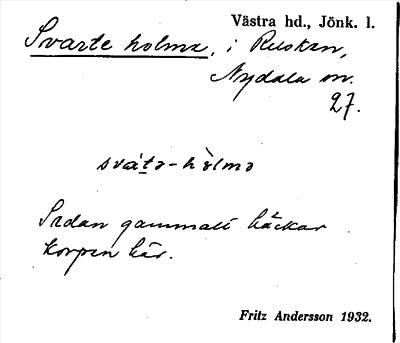 Västra hd., Jönk. l.
Svarte holme, i Rusken,
Nydala sn.
27.
svát̠ə-hòlmə
Sedan gammalt häckar
korpen här.
Fritz Andersson 1932.